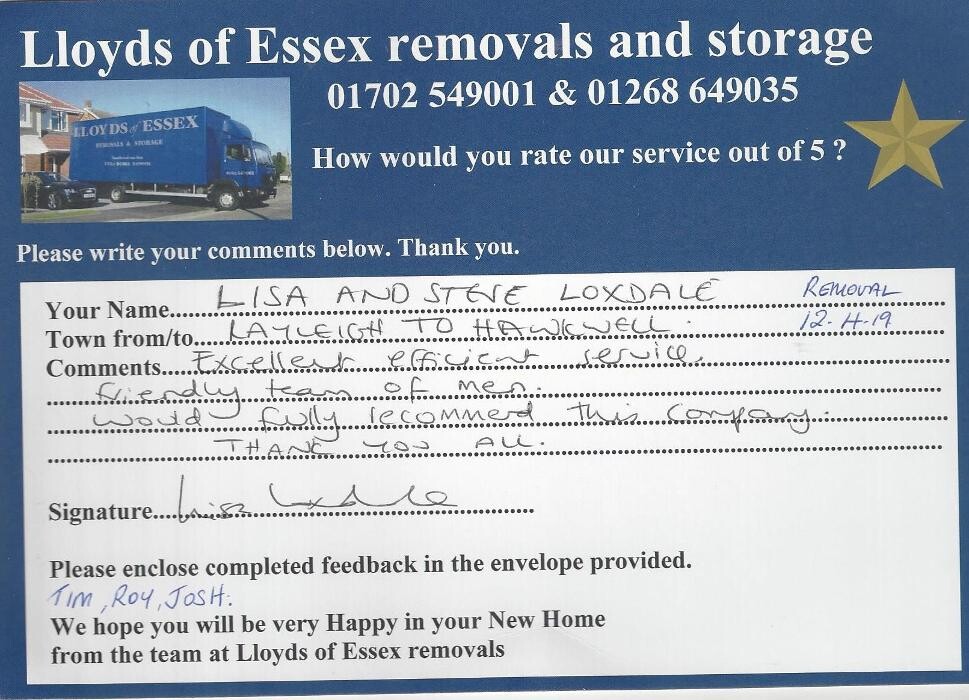 Lloyds of Essex removals and storage
01702 549001 & 01268 649035
LLOYDS of ESSEX
REMOVALS & STORAGE
How would you rate our service out of 5 ?
Please write your comments below. Thank you.
Your Name....LISA AND STEVE LOXDALE REMOVAL
Town from/to....RAYLEIGH TO HAWKWELL. 12.4.19
Comments....Excellent efficient service.
friendly team of men.
would fully recommend this company.
THANK YOU ALL.
Signature....Lisa Loxdale
Please enclose completed feedback in the envelope provided.
TIM, ROY, JOSH.
We hope you will be very Happy in your New Home
from the team at Lloyds of Essex removals